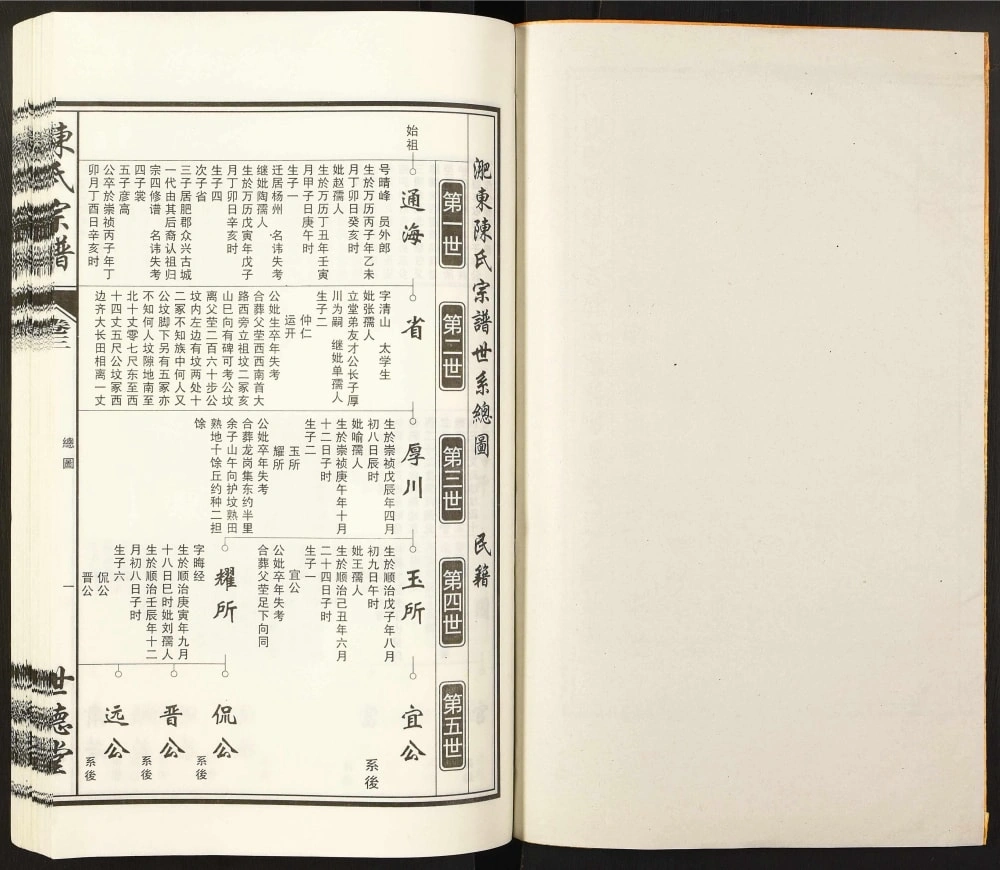 淝東陳氏宗譜世系總圖 民籍
第一世
第二世
第三世
第四世
第五世
始祖
通海
号晴峰 员外郎
生於万历丙子年乙未
月丁卯日癸亥时
妣赵孺人
生於万历丁丑年壬寅
月甲子日庚午时
生子一
迁居杨州 名讳失考
继妣陶孺人
生於万历戊寅年戊子
月丁卯日辛亥时
生子四
次子省
三子居肥郡众兴古城
一代由其后裔认祖归
宗四修谱 名讳失考
四子裳
五子彦高
公卒於崇祯丙子年丁
卯月丁酉日辛亥时
省
字清山 太学生
妣张孺人
立堂弟友才公长子厚
川为嗣 继妣单孺人
生子二
仲仁
运开
公妣生卒年失考
合葬父茔西西南首大
路西旁立祖坟二冢亥
山巳向有碑可考公坟
离父茔二百六十步公
坟内左边有坟两处十
二冢不知族中何人又
公坟脚下另有五冢亦
不知何人坟隙地南至
北十丈零七尺东至西
十四丈五尺公坟冢西
边齐大长田相离一丈
厚川
生於崇祯戊辰年四月
初八日辰时
妣喻孺人
生於崇祯庚午年十月
十二日子时
生子二
玉所
耀所
公妣卒年失考
合葬龙岗集东约半里
余子山午向护坟熟田
熟地千馀丘约种二担
馀
玉所
生於顺治戊子年八月
初九日午时
妣王孺人
生於顺治己丑年六月
二十四日子时
生子一
宜公
公妣卒年失考
合葬父茔足下向同
耀所
字晦经
生於顺治庚寅年九月
十八日巳时妣刘孺人
生於顺治壬辰年十二
月初八日子时
生子六
侃公
晋公
宜公
系後
侃公
系後
晋公
系後
远公
系後
陳氏宗譜
卷三
總圖
一
世德堂